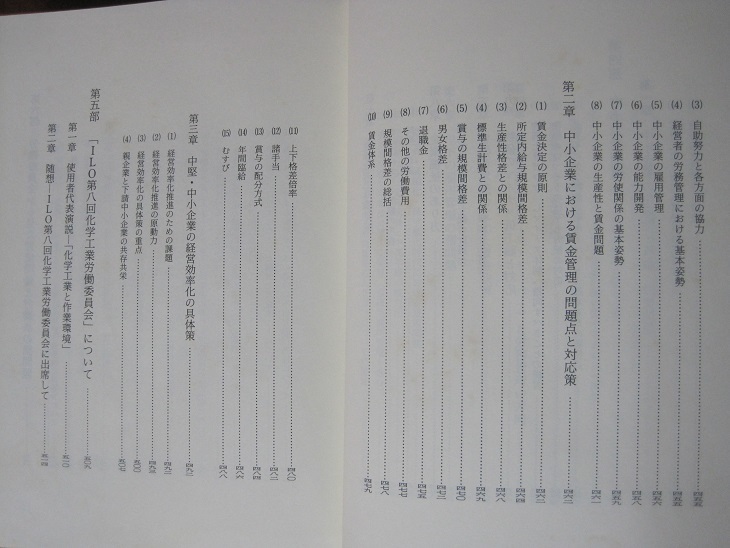 (3) 自助努力と各方面の協力……四五五
(4) 経営者の労務管理における基本姿勢……四五五
(5) 中小企業の雇用管理……四五六
(6) 中小企業の能力開発……四五八
(7) 中小企業の労使関係の基本姿勢……四五九
(8) 中小企業の生産性と賃金問題……四六一
第二章 中小企業における賃金管理の問題点と対応策……四六二
(1) 賃金決定の原則……四六二
(2) 所定内給与規模間格差……四六四
(3) 生産性格差との関係……四六八
(4) 標準生計費との関係……四六九
(5) 賞与の規模間格差……四七〇
(6) 男女格差……四七二
(7) 退職金……四七五
(8) その他の労働費用……四七七
(9) 規模間格差の総括……四七八
(10) 賃金体系……四七九
(11) 上下格差倍率……四八〇
(12) 諸手当……四八二
(13) 賞与の配分方式……四八四
(14) 年間臨給……四八六
(15) むすび……四八八
第三章 中堅・中小企業の経営効率化の具体策……四九二
(1) 経営効率化推進のための課題……四九二
(2) 経営効率化推進の原動力……四九三
(3) 経営効率化の具体策の重点……五〇〇
(4) 親企業と下請中小企業の共存共栄……五〇七
第五部 「ILO第八回化学工業労働委員会」について……五〇九
第一章 使用者代表演説―「化学工業と作業環境」……五一〇
第二章 随想―ILO第八回化学工業労働委員会に出席して……五一四